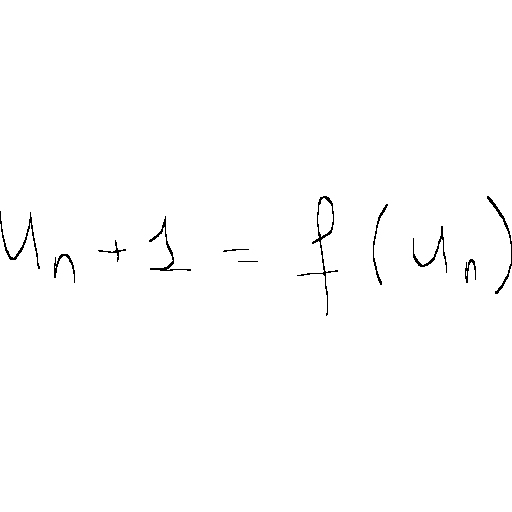 u_n + 1 = f(u_n)